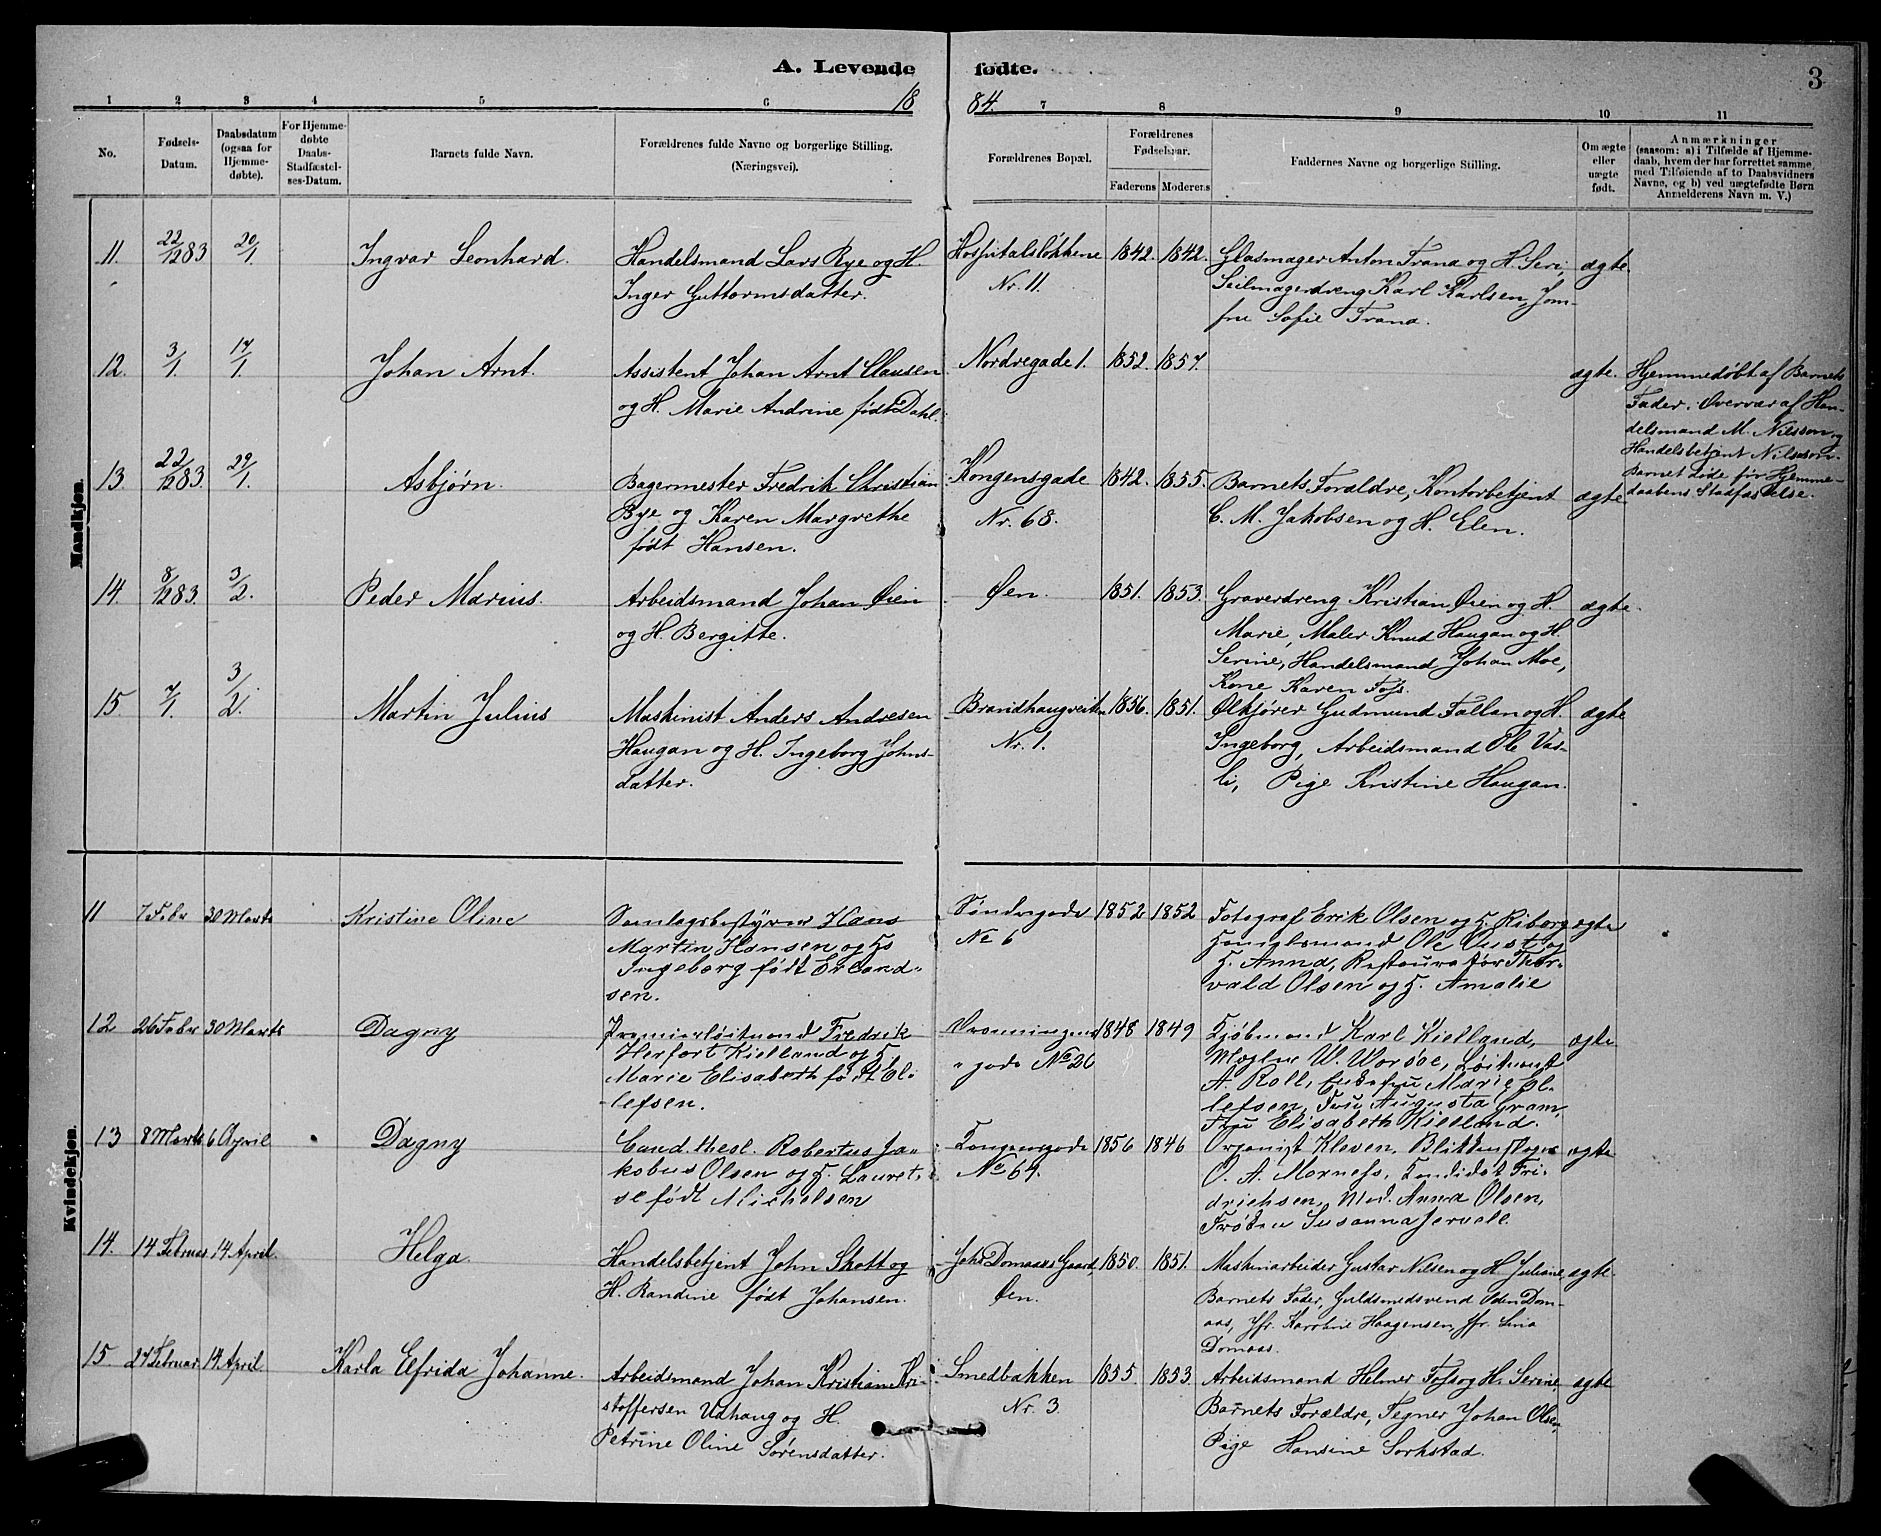 A. Levende fødte.
3
1884.
1 2 3 4 5 6 7 8 9 10 11
No.
Fødsels-Datum.
Daabsdatum (ogsaa for Hjemme-døbte).
For Hjemme-døbte Daabs-Stadfæstel-ses-Datum.
Barnets fulde Navn.
Forældrenes fulde Navne og borgerlige Stilling. (Næringsvei).
Forældrenes Bopæl.
Forældrenes Fødselsaar.
Faderens Moderens
Faddernes Navne og borgerlige Stilling.
Om ægte eller uægte født.
Anmærkninger
(saasom: a) i Tilfælde af Hjemme-
daab, hvem der har forrettet samme,
med Tilføiende af to Daabsvidners
Navne, og b) ved uægtefødte Børn
Anmelderens Navn m. V.)
Mandkjøn.
11. 22/12 83 20/1. Ingvar Leonhard.
Handelsmand Lars Rye og H.
Inger Guttormsdatter.
Hospitalsløkkene
Nr. 11.
1842. 1842.
Glasmager Anton Trana og H. Seri,
Seilmagerdreng Karl Karlsen, Jom-
fru Sofie Trana.
ægte.
12. 3/1 17/1. Johan Arnt.
Assistent Johan Arnt Clausen
og H. Marie Andrine født Dahl.
Nordregade 1.
1852. 1857.
ægte.
Hjemmedøbt af Barnets
Fader. Overvær af Han-
delsmand M. Nilsson og
Handelsbetjent Nilsson.
Barnet døde før Hjemme-
daabens Stadfæstelse.
13. 22/12 83. 29/1. Asbjørn.
Bagermester Fredrik Christian
Bye og Karen Margrethe
født Hansen.
Kongensgade
Nr. 68.
1842. 1855.
Barnets Forældre, Kontorbetjent
C. M. Jakobsen og H. Elen.
ægte
14. 8/12 83. 3/2. Peder Marius.
Arbeidsmand Johan Øien
og H. Bergitte.
Øen.
1851. 1853.
Graverdreng Kristian Øien og H.
Marie, Maler Knud Haugan og H.
Serine, Handelsmand Johan Moe,
Kone Karen Foss.
ægte.
15. 7/1. 3/2. Martin Julius
Maskinist Anders Andresen
Haugan og H. Ingeborg Johns-
datter.
Brandhaugveiten
Nr. 1.
1856. 1851.
Ølkjører Gudmund Fallan og H.
Ingeborg, Arbeidsmand Ole Var-
li, Pige Kristine Haugan.
ægte
Kvindekjøn.
11 7 Febr 30 Marts Kristine Oline
Samlagsbestyrer Hans
Martin Hansen og Hs
Ingeborg født Erland-
sen.
Søndregade
No 6
1852 1852
Fotograf Erik Olsen og H. Riborg
Handelsmand Ole Aust og
H. Anna, Restauratør Thor-
vald Olsen og H. Amalie
ægte
12 26 Febr 30 Marts Dagny
Premierløitnand Fredrik
Herfort Kielland og H
Marie Elisabeth født El-
lefsen.
gade No 26
1848 1849
Kjøbmand Karl Kielland,
Mægler W. Worsøe, Løitnant
A. Roll, Enkefru Marie El-
lefsen, Fru Augusta Gram,
Fru Elisabeth Kielland.
ægte
13 8 Marts 6 April Dagny
Cand. theol. Robertus Ja-
kobus Olsen og H. Lauret-
se født Michelsen
Kongensgade
No 69.
1856 1846
Organist Kleven, Blikkenslager
O. A. Mornæss, Kandidat Fri-
drichsen, Mad. Anna Olsen,
Frøken Susanna Jervell.
ægte
14. 14 Februar 14 April. Helga.
Handelsbetjent John Skott og
H. Randine født Johansen.
Johs Domaas Gaard,
Øen.
1850. 1851.
Maskinarbeider Gustav Nilsen og H. Juliane,
Barnets Fader, Guldsmedsvend Oden Dom-
aas, Jfr. Karoline Haagensen, Jfr. Lina
Domaas.
ægte.
15. 27 Februar 14 April Karla Elfrida Johanne.
Arbeidsmand Johan Kristian Kri-
stoffersen Udhaug og H.
Petrine Oline Sørensdatter.
Smedbakken
Nr. 3.
1855. 1853.
Arbeidsmand Helmer Foss og H. Serine
Barnets Forældre, Tegner Johan Olsen,
Pige Hansine Sorkstad.
ægte